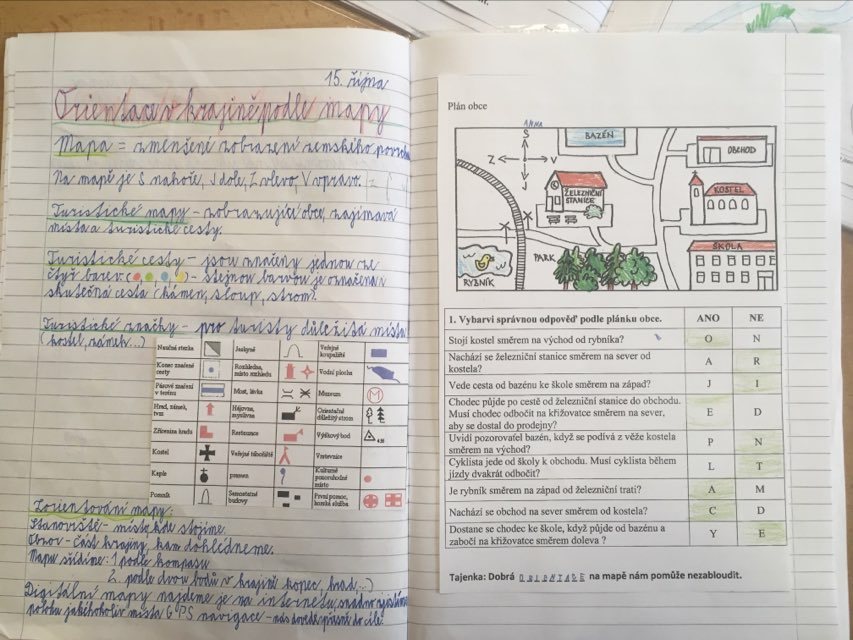 15. října
Orientace v krajině podle mapy
Mapa = zmenšené zobrazení zemského povrchu
Na mapě je S nahoře, J dole, Z vlevo, V vpravo.
Turistické mapy - zobrazující obce, zajímavá
místa a turistické cesty.
Turistické cesty - jsou značeny jednou ze
čtyř barev ( ) - stejnou barvou je označena
skutečná cesta (kámen, sloup, strom).
Turistické značky - pro turisty důležitá místa
(kostel, zámek...)
Naučná stezka Jeskyně Veřejné koupaliště
Konec značené cesty Rozhledna, místo rozhledu Vodní plocha
Pásové značení v terénu Most, lávka Muzeum M
Hrad, zámek, tvrz Hájovna, myslivna Orientačně důležitý strom
Zřícenina hradu Restaurace Výškový bod
Kostel Veřejné tábořiště Vrstevnice
Kaple pramen Kulturně pozoruhodné místo
Pomník Samostatné budovy První pomoc, horská služba
Zorientování mapy:
Stanoviště - místo kde stojíme.
Obzor - část krajiny, kam dohlédneme.
Mapu řídíme: 1 podle kompasu
2. podle dvou bodů v krajině kopec, hrad...)
Digitální mapy najdeme je na internetu, snadno zjistíme
polohu jakéhokoliv místa GPS navigace - nás dovede přesně do cíle.
Plán obce
ANNA
S
Z V
J
BAZÉN
OBCHOD
ŽELEZNIČNÍ
STANICE
KOSTEL
ŠKOLA
PARK
RYBNÍK
1. Vybarvi správnou odpověď podle plánku obce. ANO NE
Stojí kostel směrem na východ od rybníka? O N
Nachází se železniční stanice směrem na sever od
kostela? A R
Vede cesta od bazénu ke škole směrem na západ? J I
Chodec půjde po cestě od železniční stanice do obchodu.
Musí chodec odbočit na křižovatce směrem na sever,
aby se dostal do prodejny? E D
Uvidí pozorovatel bazén, když se podívá z věže kostela
směrem na východ? P N
Cyklista jede od školy k obchodu. Musí cyklista během
jízdy dvakrát odbočit? L T
Je rybník směrem na západ od železniční trati? A M
Nachází se obchod na sever směrem od kostela? C D
Dostane se chodec ke škole, když půjde od bazénu a
zabočí na křižovatce směrem doleva ? Y E
Tajenka: Dobrá na mapě nám pomůže nezabloudit.